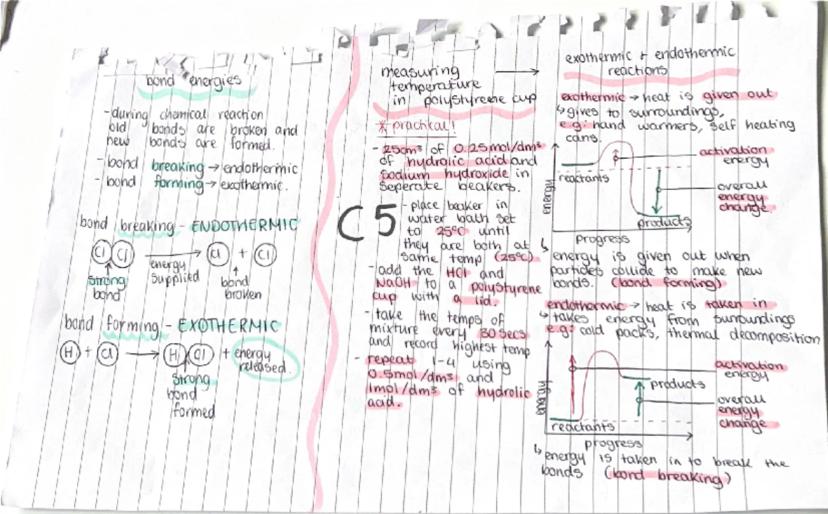 bond energies
- during chemical reaction
old bonds are broken and
new bonds are formed.
- bond breaking → endothermic
- bond forming → exothermic.
bond breaking - ENDOTHERMIC
Cl Cl → Cl + Cl
energy
supplied
strong
bond
bond
broken
bond forming - EXOTHERMIC
H + Cl → H Cl + energy
released.
strong
bond
formed
C5
measuring →
temperature
in polystyrene cup
* practical!
- 25cm³ of 0.25mol/dm³
of hydrolic acid and
sodium hydroxide in
seperate beakers.
- place beaker in
water bath set
to 25°C until
they are both at
same temp (25°C)
- add the HCl and
NaOH to a polystyrene
cup with a lid.
- take the temps of
mixture every 30secs
and record highest temp
- repeat 1-4 using
0.5mol/dm³ and
1mol/dm³ of hydrolic
acid.
exothermic + endothermic
reactions
exothermic → heat is given out
↳ gives to surroundings,
e.g: hand warmers, self heating
cans.
energy
reactants
activation
energy
overall
energy
change.
products
Progress
↳ energy is given out when
particles collide to make new
bonds. (bond forming)
endothermic → heat is taken in
↳ takes energy from surroundings
e.g: cold packs, thermal decomposition
energy
activation
energy
products
overall
energy
change
reactants
progress
↳ energy is taken in to break the
bonds (bond breaking)